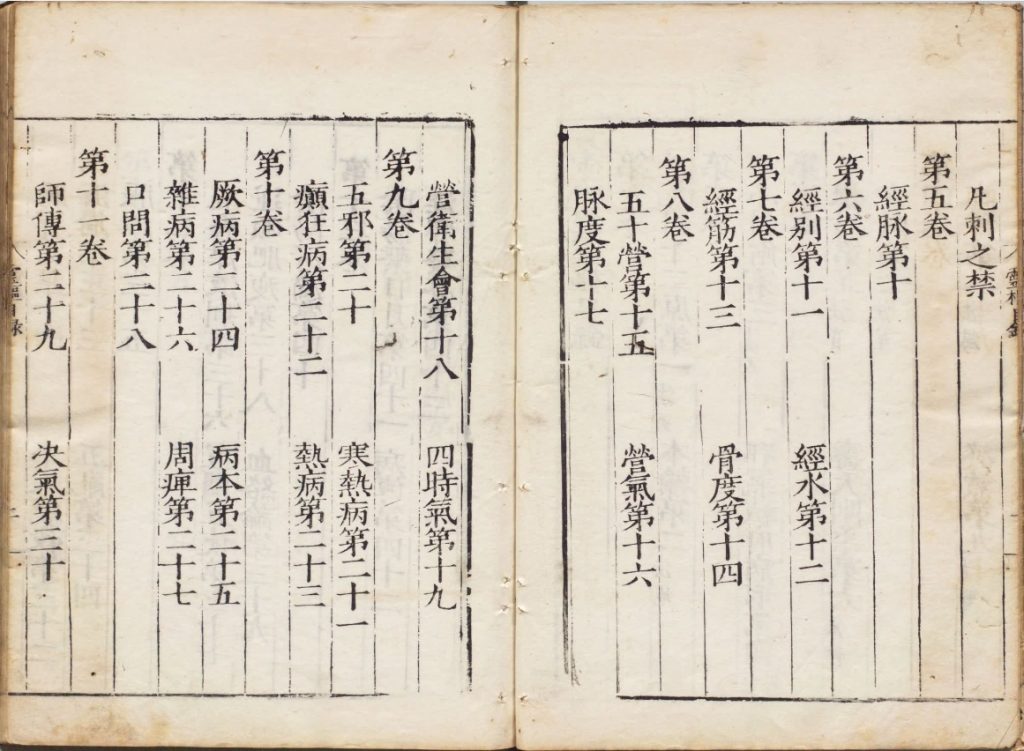 凢刺之禁
第五卷
經脉第十
第六卷
經别第十一　經水第十二
第七卷
經筋第十三　骨度第十四
第八卷
五十營第十五　營氣第十六
脉度第十七
營衛生會第十八　四時氣第十九
第九卷
五邪第二十　寒熱病第二十一
癲狂病第二十二　熱病第二十三
第十卷
厥病第二十四　病本第二十五
雜病第二十六　周痺第二十七
口問第二十八
第十一卷
師傳第二十九　决氣第三十